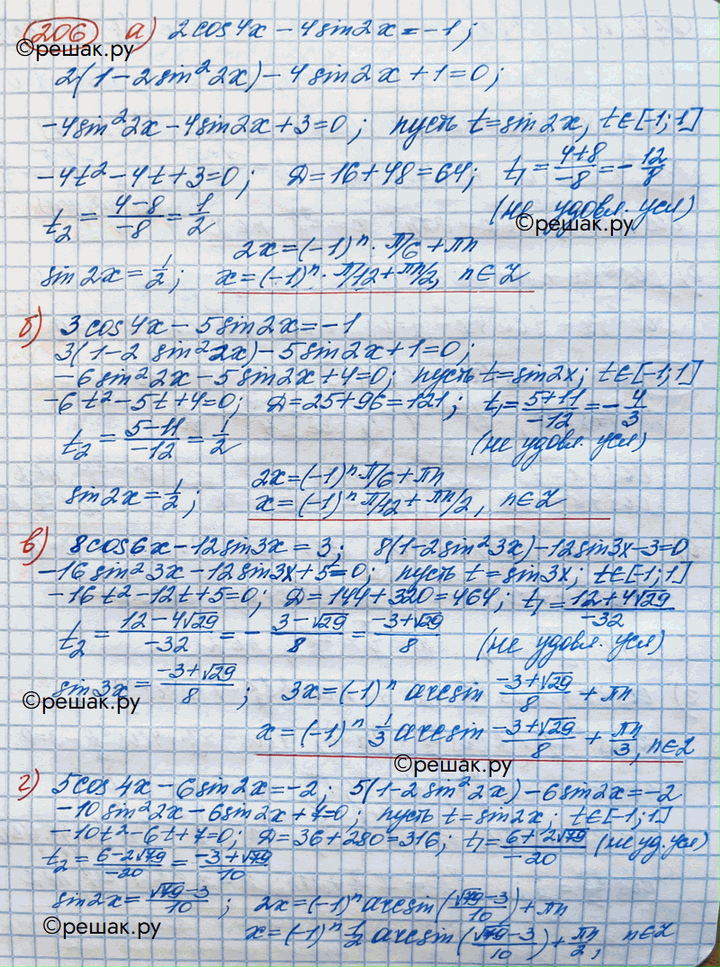 206 а) 2cos4x - 4sin2x = -1;
©решак.ру
2(1-2sin²2x) - 4sin2x + 1 = 0;
-4sin²2x - 4sin2x + 3 = 0; пусть t = sin2x, t∈[-1;1]
-4t² - 4t + 3 = 0; D = 16 + 48 = 64; t₁ = (4+8)/(-8) = -12/8
t₂ = (4-8)/(-8) = 1/2 (не удовл. усл)
©решак.ру
2x = (-1)ⁿ · π/6 + πn
sin2x = 1/2; x = (-1)ⁿ · π/12 + πn/2, n∈Z
б) 3cos4x - 5sin2x = -1
3(1-2 sin²2x) - 5sin2x + 1 = 0;
-6sin²2x - 5sin2x + 4 = 0; пусть t = sin2x; t∈[-1;1]
-6t² - 5t + 4 = 0; D = 25 + 96 = 121; t₁ = (5+11)/(-12) = -4/3
t₂ = (5-11)/(-12) = 1/2 (не удовл. усл)
2x = (-1)ⁿ π/6 + πn
sin2x = 1/2; x = (-1)ⁿ π/12 + πn/2, n∈Z
в) 8cos6x - 12sin3x = 3; 8(1-2sin²3x) - 12sin3x - 3 = 0
-16sin²3x - 12sin3x + 5 = 0; пусть t = sin3x; t∈[-1;1]
-16t² - 12t + 5 = 0; D = 144 + 320 = 464; t₁ = (12+4√29)/(-32)
t₂ = (12-4√29)/(-32) = -(3-√29)/8 = (-3+√29)/8 (не удовл. усл)
sin3x = (-3+√29)/8; 3x = (-1)ⁿ arcsin (-3+√29)/8 + πn
©решак.ру
x = (-1)ⁿ 1/3 arcsin (-3+√29)/8 + πn/3, n∈Z
©решак.ру
г) 5cos4x - 6sin2x = -2; 5(1-2sin²2x) - 6sin2x = -2
-10sin²2x - 6sin2x + 7 = 0; пусть t = sin2x; t∈[-1;1]
-10t² - 6t + 7 = 0; D = 36 + 280 = 316; t₁ = (6+2√79)/(-20) (не уд. усл)
t₂ = (6-2√79)/(-20) = (-3+√79)/10
sin2x = (√79-3)/10; 2x = (-1)ⁿ arcsin((√79-3)/10) + πn
©решак.ру
x = (-1)ⁿ 1/2 arcsin((√79-3)/10) + πn/2, n∈Z